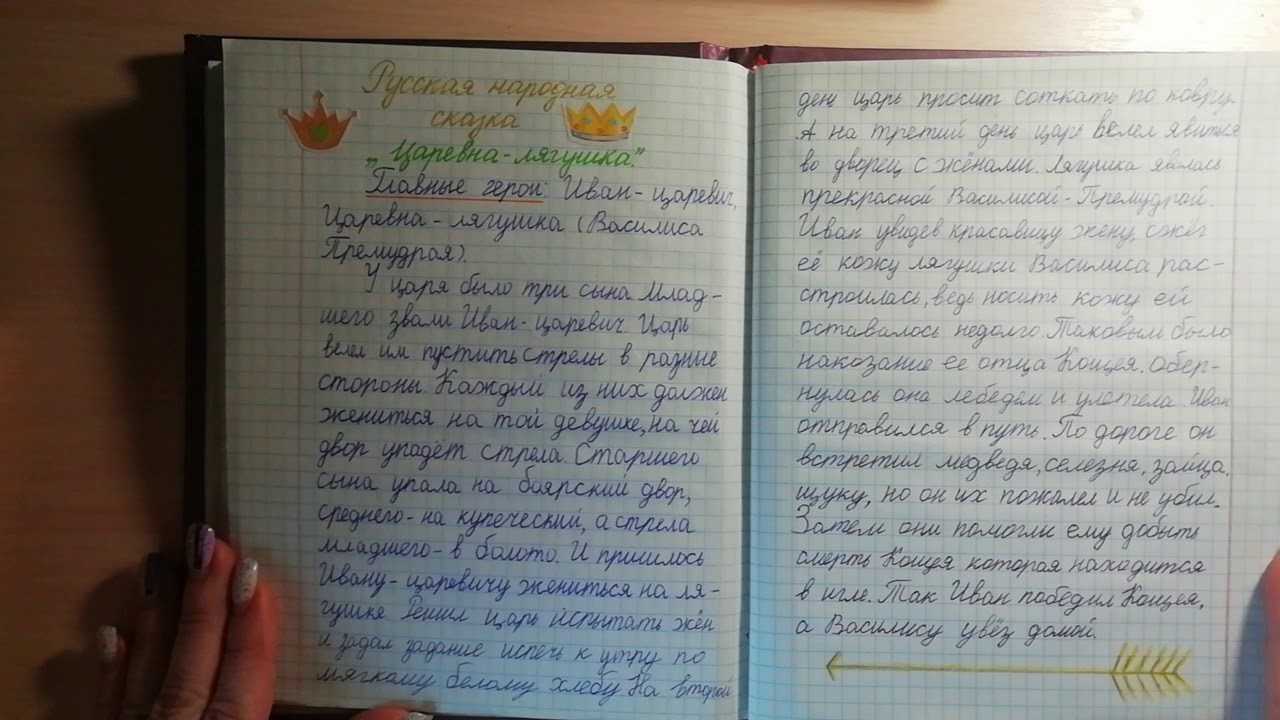 Русская народная
сказка
„Царевна-лягушка."
Главные герои: Иван-царевич,
Царевна-лягушка (Василиса
Премудрая).
У царя было три сына. Млад-
шего звали Иван-царевич. Царь
велел им пустить стрелы в разные
стороны. Каждый из них должен
жениться на той девушке, на чей
двор упадёт стрела. Старшего
сына упала на боярский двор,
среднего - на купеческий, а стрела
младшего - в болото. И пришлось
Ивану-царевичу жениться на ля-
гушке. Решил царь испытать жён
и задал задание испечь к утру по
мягкому белому хлебу. На второй
день царь просит соткать по ковру.
А на третий день царь велел явиться
во дворец с жёнами. Лягушка явилась
прекрасной Василисой-Премудрой.
Иван увидев красавицу жену, сжёг
её кожу лягушки. Василиса рас-
строилась, ведь носить кожу ей
оставалось недолго. Таковым было
накозание ее отца Кощея. Обер-
нулась она лебедем и улетела. Иван
отправился в путь. По дороге он
встретил медведя, селезня, зайца,
щуку, но он их пожалел и не убил.
Затем они помогли ему добыть
смерть Кощея которая находится
в игле. Так Иван победил Кощея,
а Василису увёз домой.